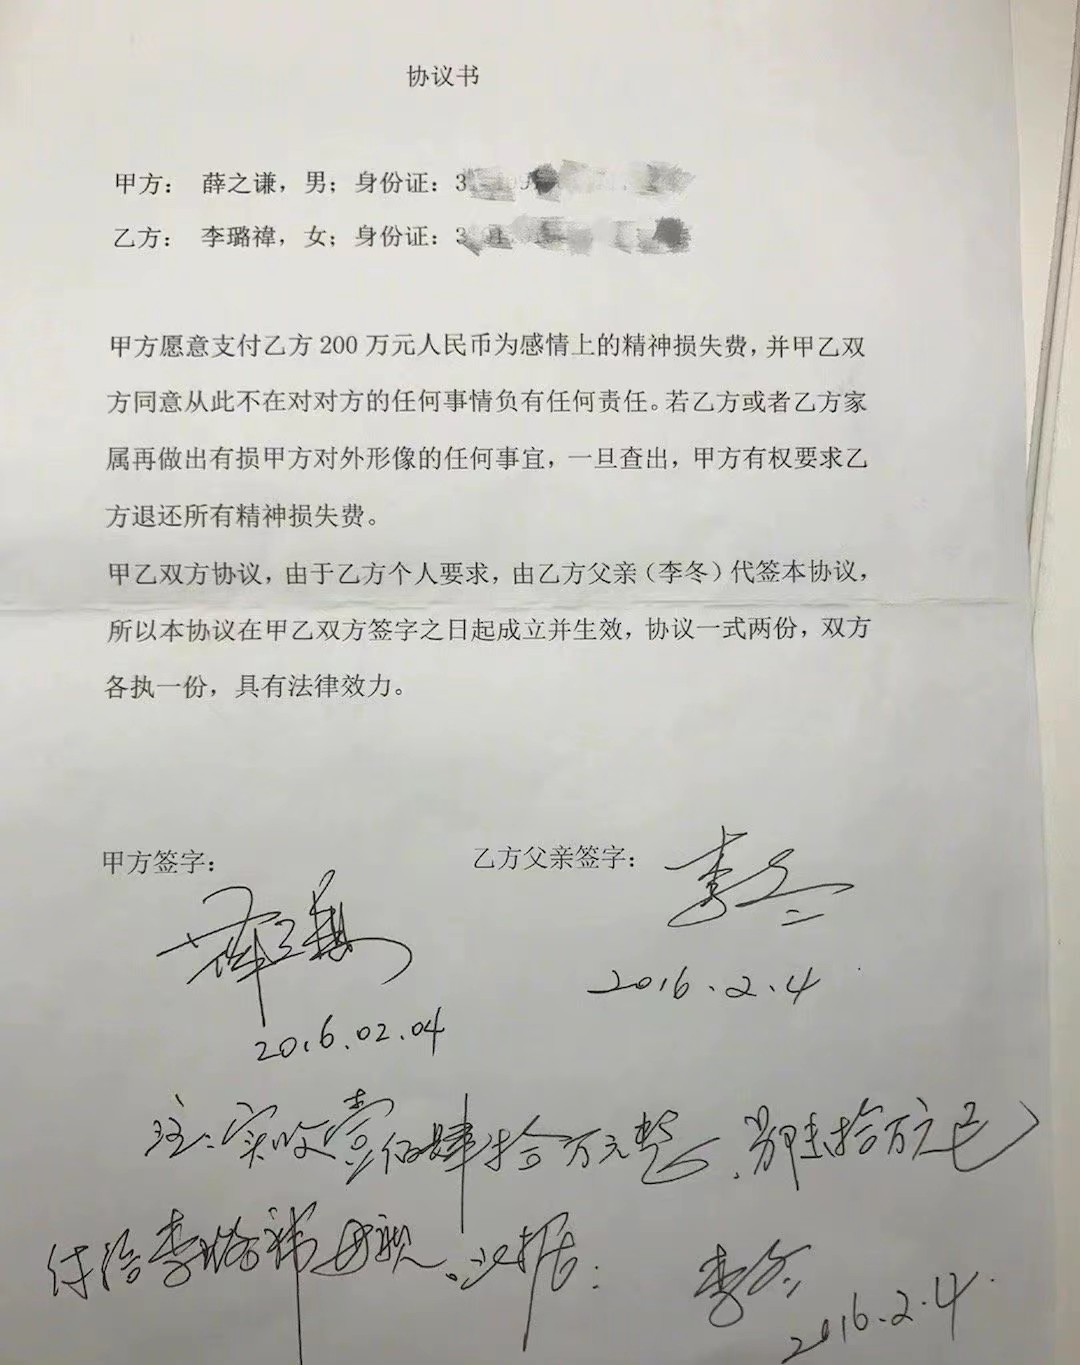 协议书
甲方： 薛之谦，男；身份证：3
乙方： 李璐禕，女；身份证：3
甲方愿意支付乙方 200 万元人民币为感情上的精神损失费，并甲乙双
方同意从此不在对对方的任何事情负有任何责任。若乙方或者乙方家
属再做出有损甲方对外形像的任何事宜，一旦查出，甲方有权要求乙
方退还所有精神损失费。
甲乙双方协议，由于乙方个人要求，由乙方父亲（李冬）代签本协议，
所以本协议在甲乙双方签字之日起成立并生效，协议一式两份，双方
各执一份，具有法律效力。
甲方签字： 乙方父亲签字： 李冬
薛之谦 2016.2.4
2016.02.04
注：实收壹佰肆拾万元整，另陆拾万元已
付给李璐禕母亲。以据：
李冬
2016.2.4